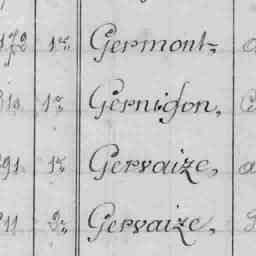 172 1r. Germont,
1r. Gernigon,
91 1r. Gervaize, a
11 2r. Gervaize,